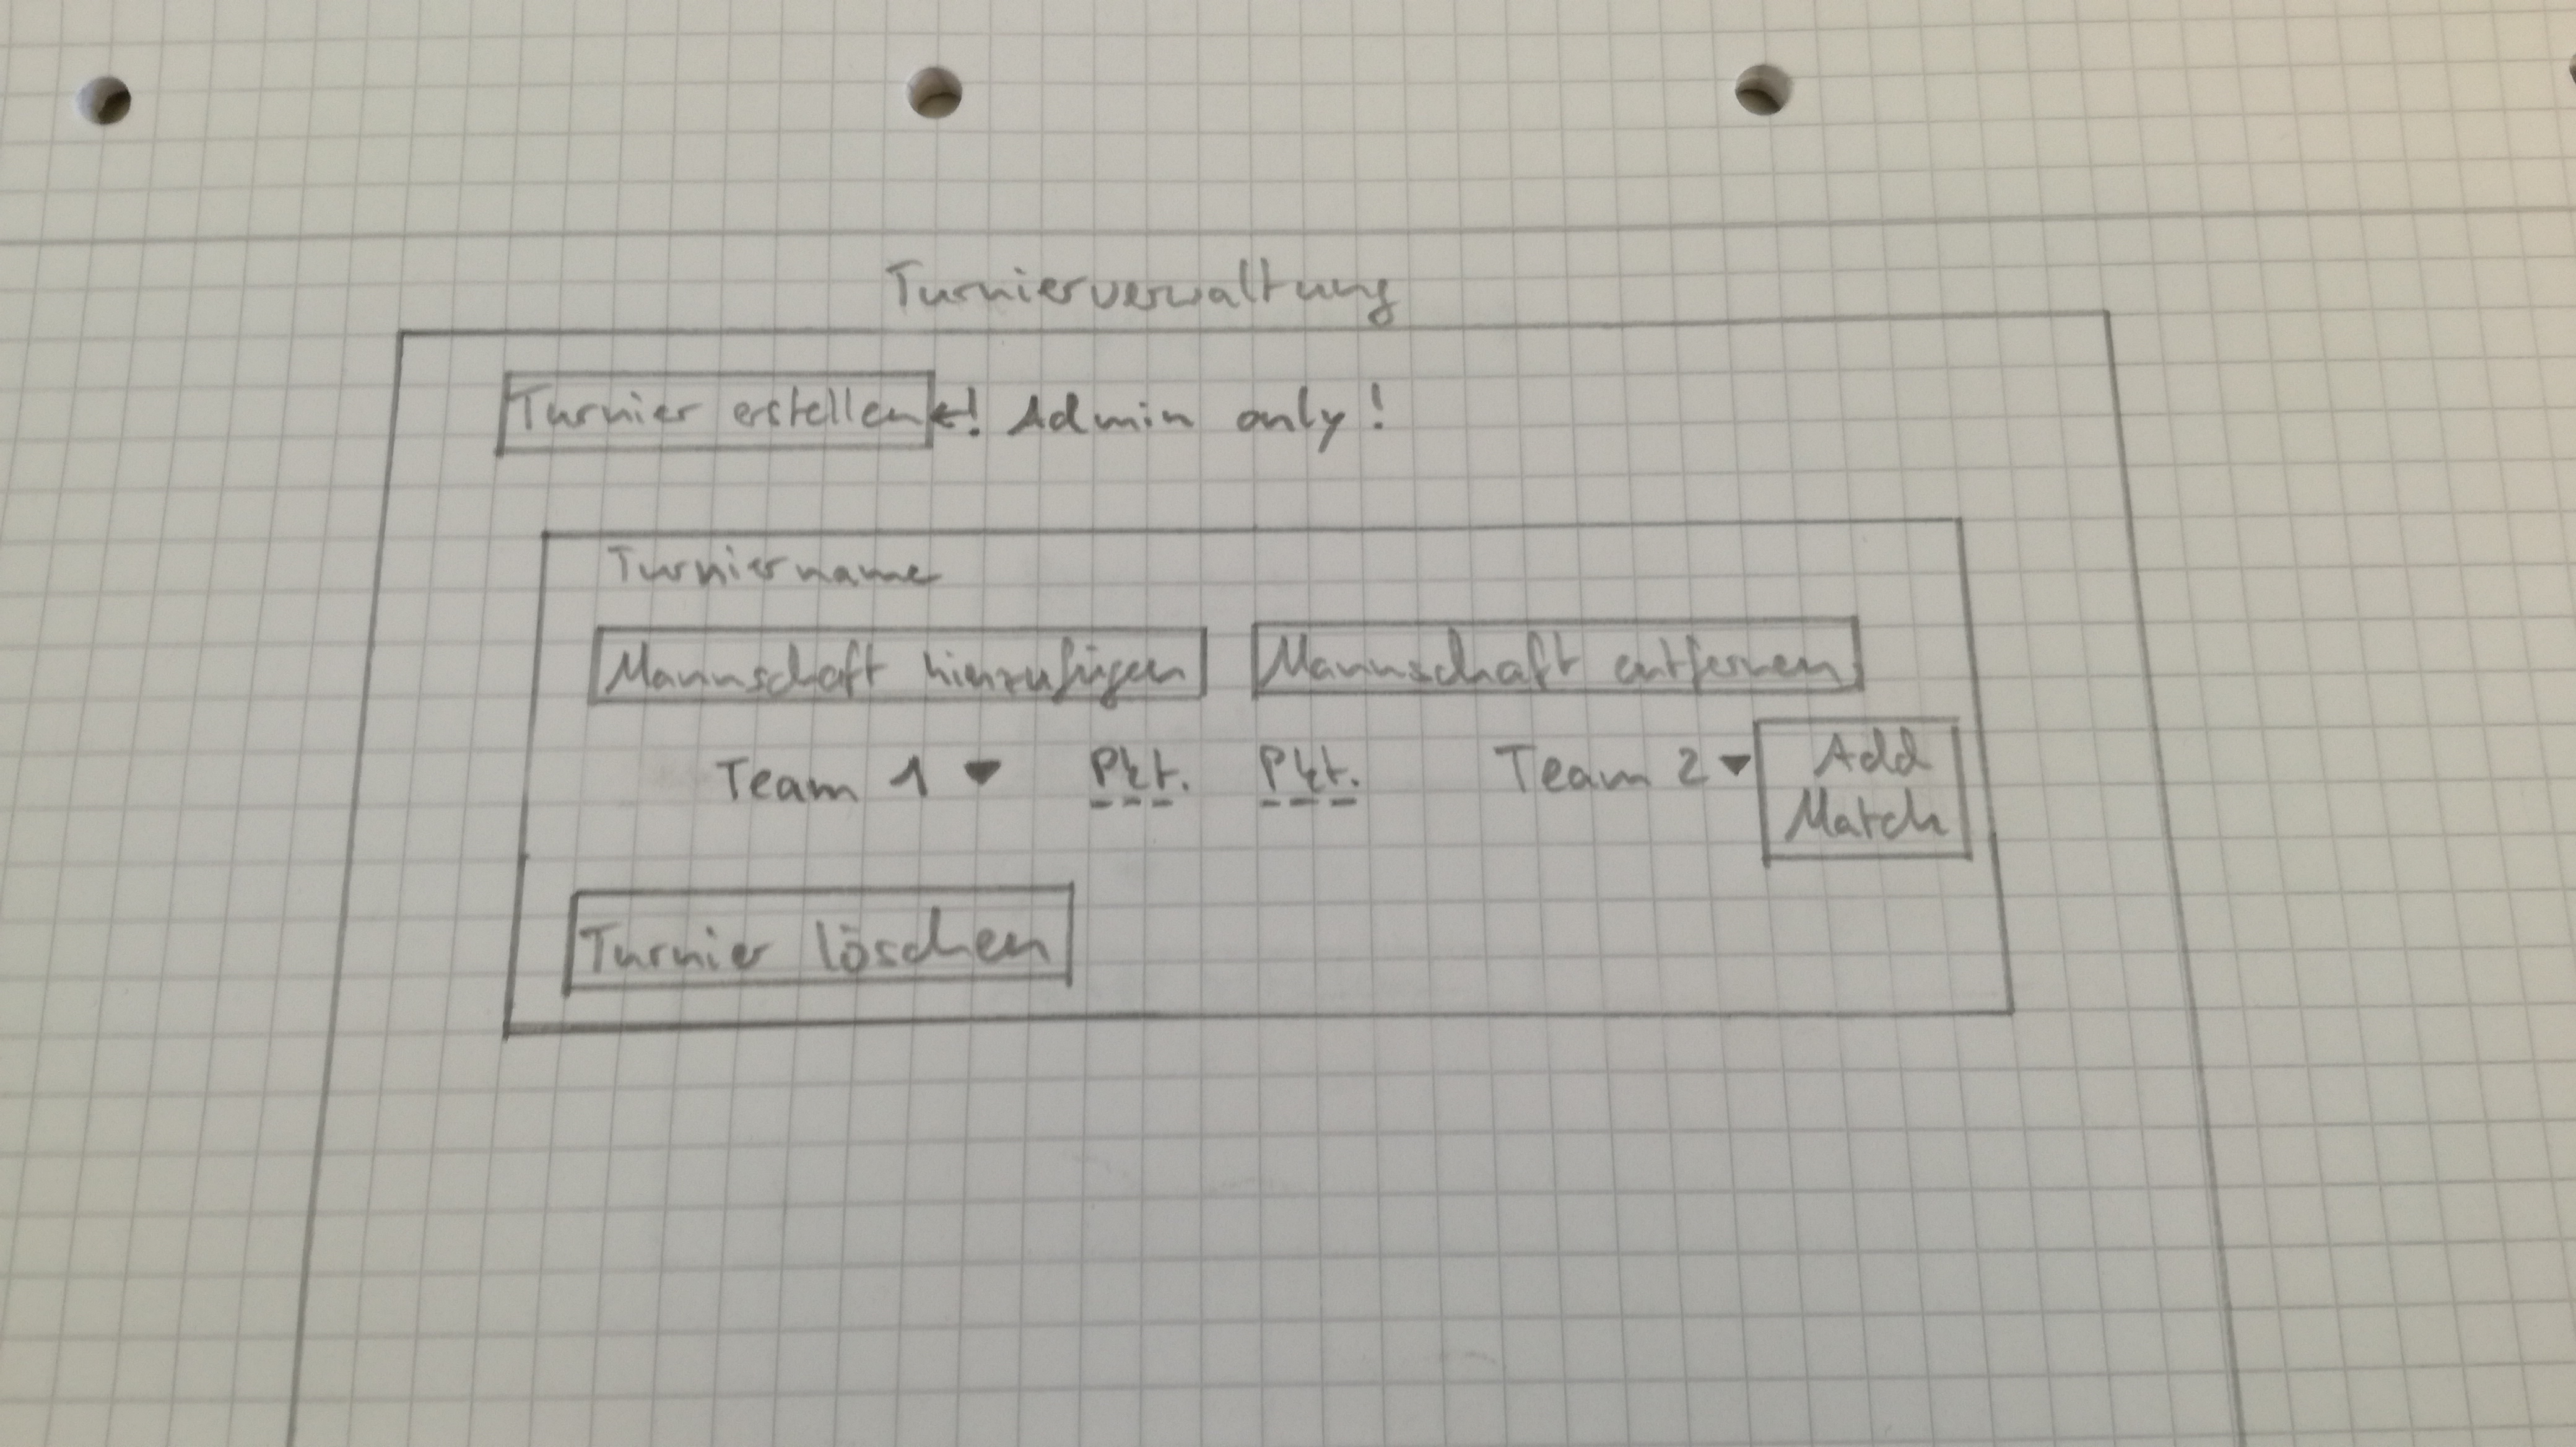 Turnierverwaltung
Turnier erstellen ←! Admin only!
Turniername
Mannschaft hinzufügen Mannschaft entfernen
Team 1 ▾ Pkt. Pkt. Team 2 ▾ Add
Match
Turnier löschen